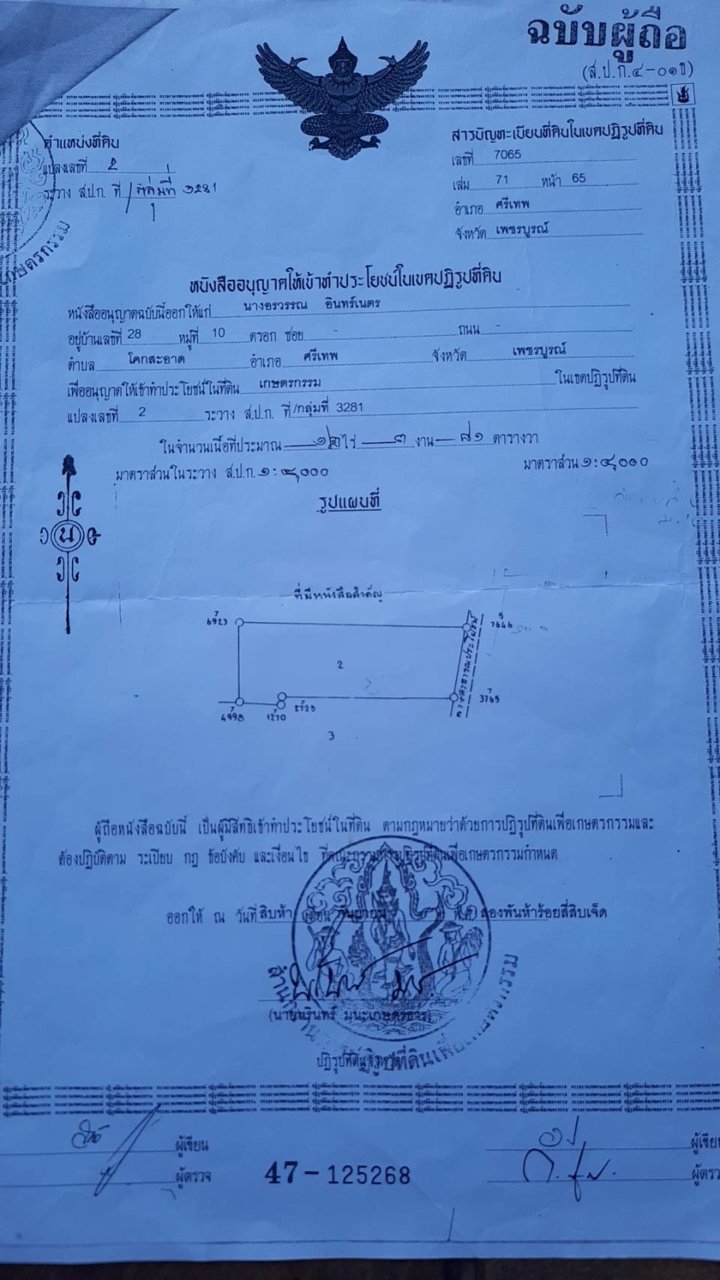 ฉบับผู้ถือ
(ส.ป.ก.๔-๐๑ข)
ตำแหน่งที่ดิน
แปลงเลขที่ 2
ระวาง ส.ป.ก. ที่/กลุ่มที่ 3281
สารบัญทะเบียนที่ดินในเขตปฏิรูปที่ดิน
เลขที่ 7065
เล่ม 71 หน้า 65
อำเภอ ศรีเทพ
จังหวัด เพชรบูรณ์
หนังสืออนุญาตให้เข้าทำประโยชน์ในเขตปฏิรูปที่ดิน
หนังสืออนุญาตฉบับนี้ออกให้แก่ นางอรวรรณ อินทร์เนตร
อยู่บ้านเลขที่ 28 หมู่ที่ 10 ตรอก ซอย - ถนน -
ตำบล โคกสะอาด อำเภอ ศรีเทพ จังหวัด เพชรบูรณ์
เพื่ออนุญาตให้เข้าทำประโยชน์ในที่ดิน เกษตรกรรม ในเขตปฏิรูปที่ดิน
แปลงเลขที่ 2 ระวาง ส.ป.ก. ที่/กลุ่มที่ 3281
ในจำนวนเนื้อที่ประมาณ ๑๒ ไร่ ๓ งาน ๘๑ ตารางวา
มาตราส่วนในระวาง ส.ป.ก. ๑:๔,๐๐๐ มาตราส่วน ๑:๔,๐๐๐
รูปแผนที่
น
ที่มีหนังสือสำคัญ
6923
7646
2
ทางสาธารณประโยชน์
4998
1270
2725
3765
3
ผู้ถือหนังสือฉบับนี้ เป็นผู้มีสิทธิเข้าทำประโยชน์ในที่ดิน ตามกฎหมายว่าด้วยการปฏิรูปที่ดินเพื่อเกษตรกรรมและ
ต้องปฏิบัติตาม ระเบียบ กฎ ข้อบังคับ และเงื่อนไข ที่คณะกรรมการปฏิรูปที่ดินเพื่อเกษตรกรรมกำหนด
ออกให้ ณ วันที่ สิบห้า เดือน กันยายน พ.ศ. สองพันห้าร้อยสี่สิบเจ็ด
(นายนรินทร์ มนะเกษตรธาร)
ปฏิรูปที่ดินจังหวัด
ผู้เขียน
ผู้ตรวจ
47-125268
ผู้เขียน
ผู้ตรวจ